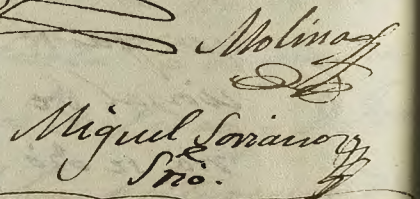 Molina
Miguel Soriano
Srio.